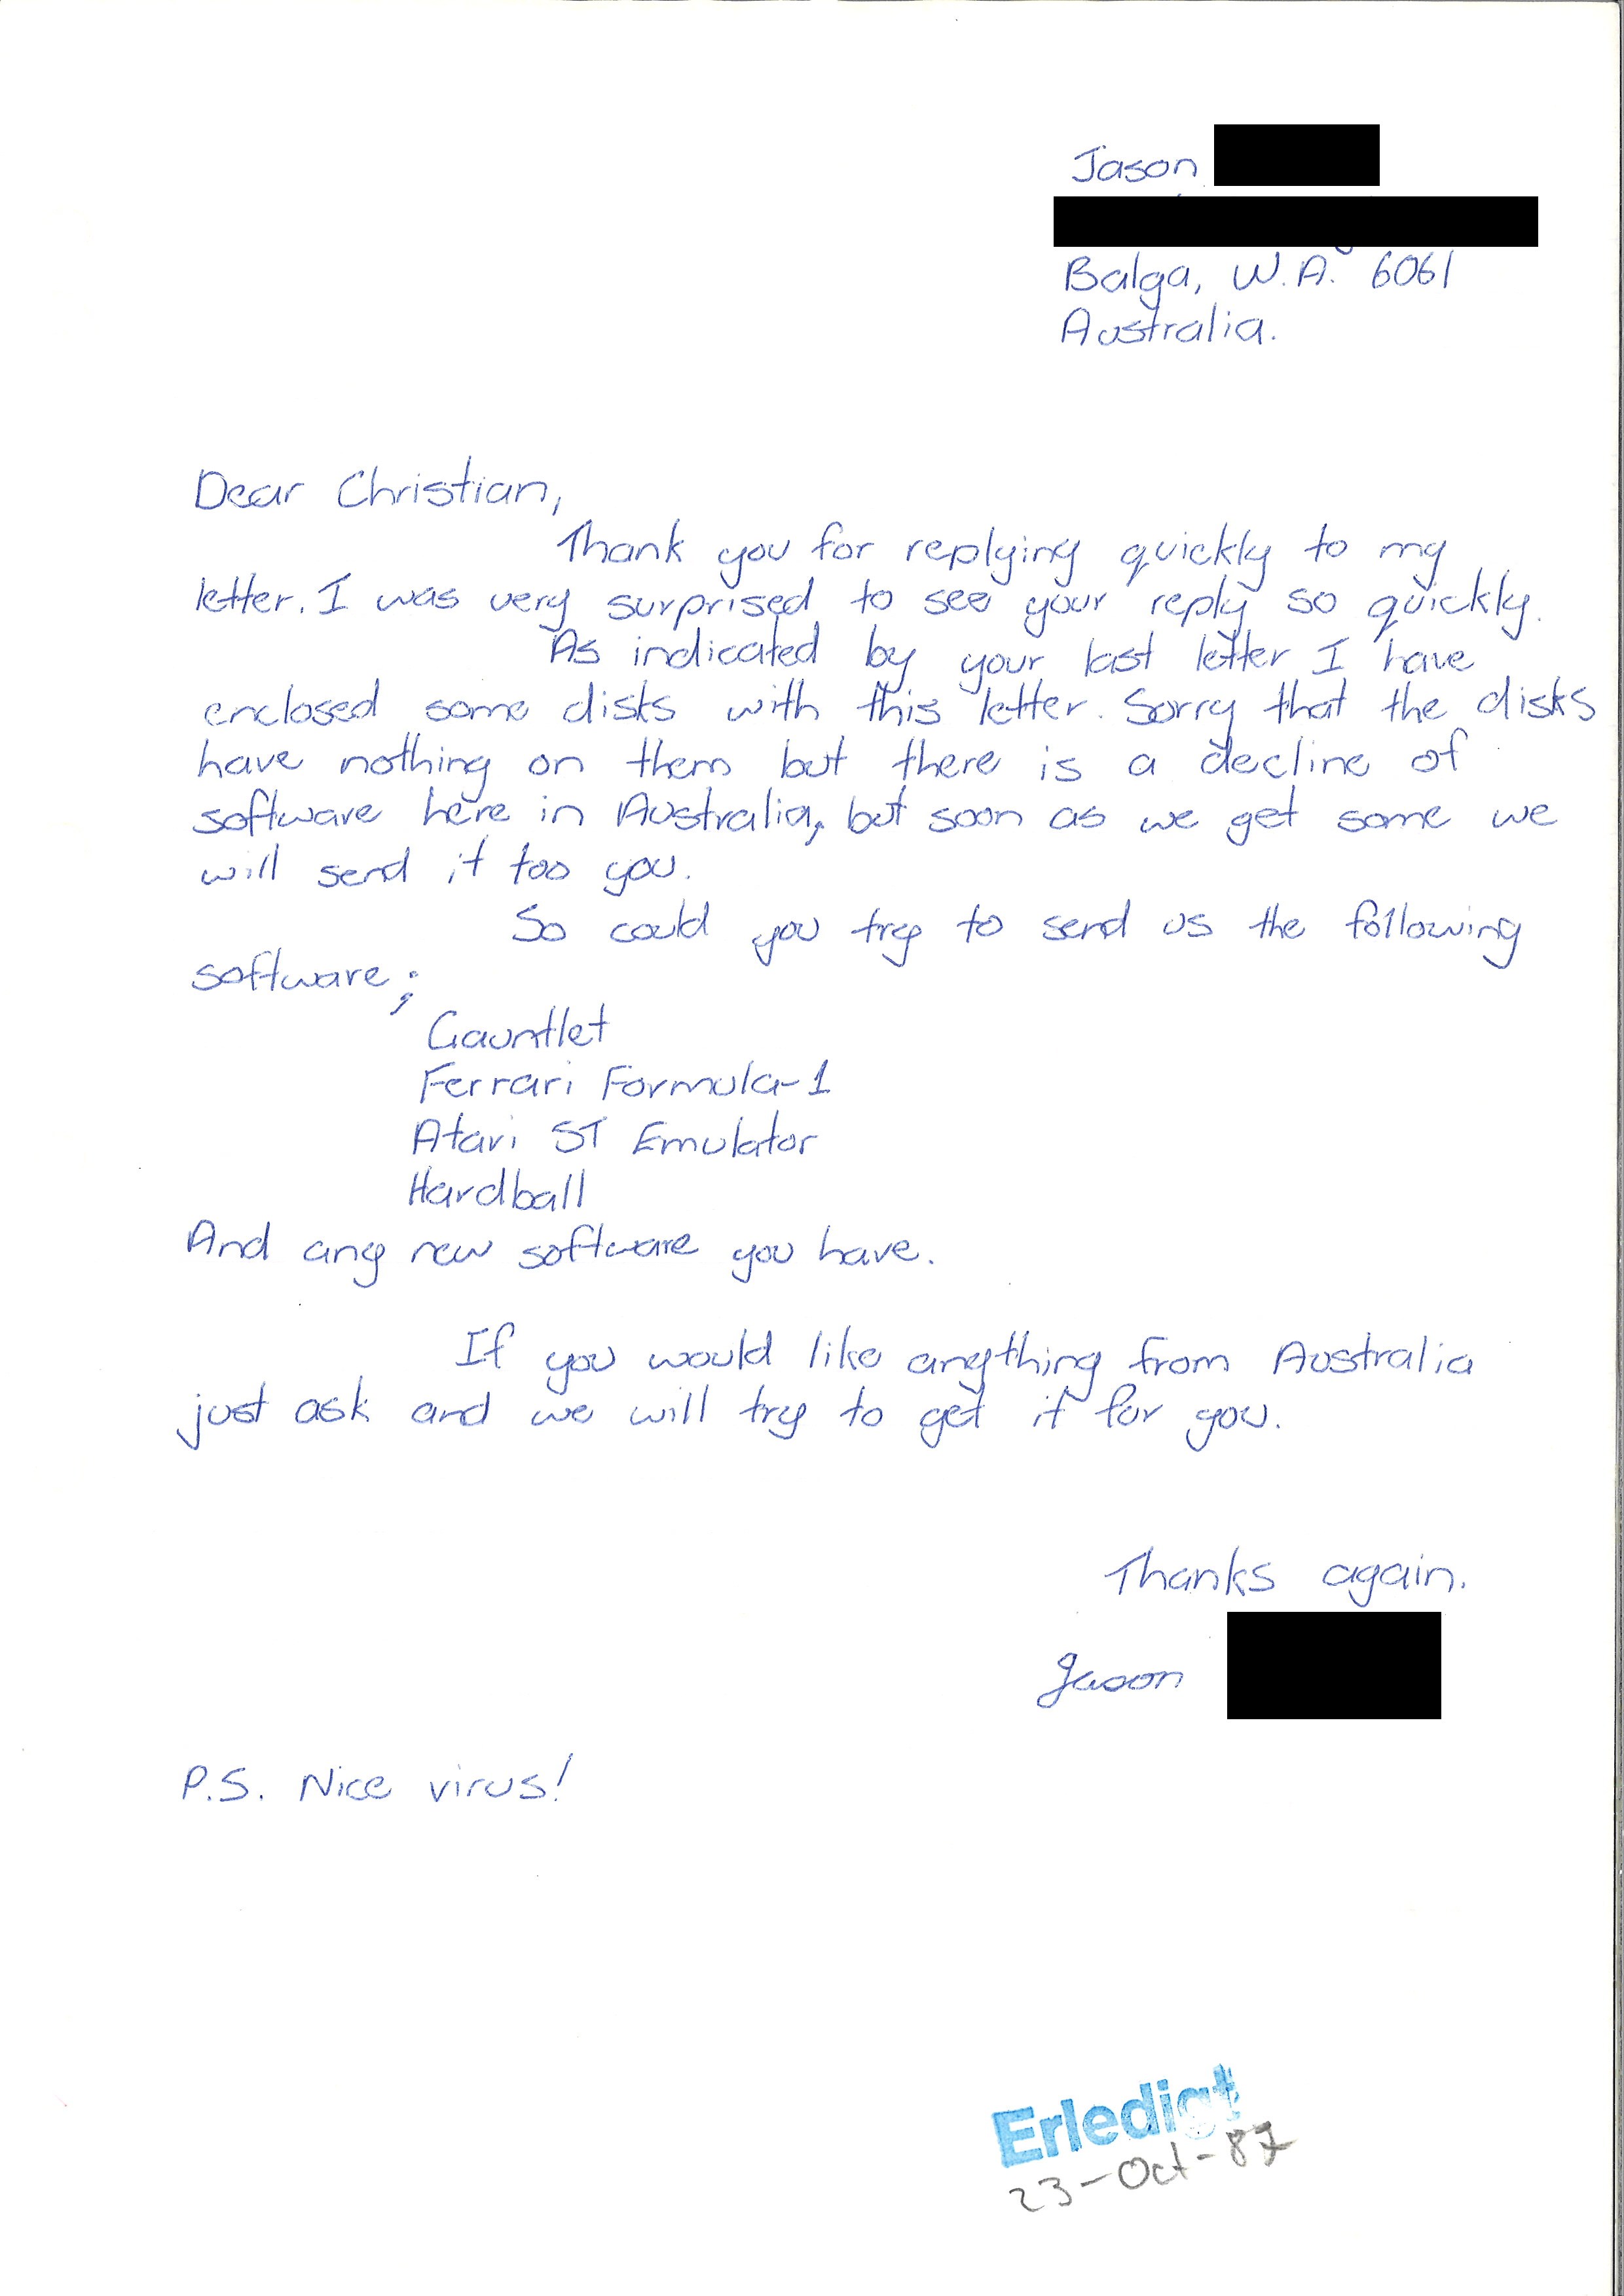 Jason
Balga, W.A. 6061
Australia.
Dear Christian,
Thank you for replying quickly to my
letter. I was very surprised to see your reply so quickly.
As indicated by your last letter I have
enclosed some disks with this letter. Sorry that the disks
have nothing on them but there is a decline of
software here in Australia, but soon as we get some we
will send it too you.
So could you try to send us the following
software;
Gauntlet
Ferrari Formula-1
Atari ST Emulator
Hardball
And any new software you have.
If you would like anything from Australia
just ask and we will try to get it for you.
Thanks again.
Jason
P.S. Nice virus!
Erledigt
23-Oct-87